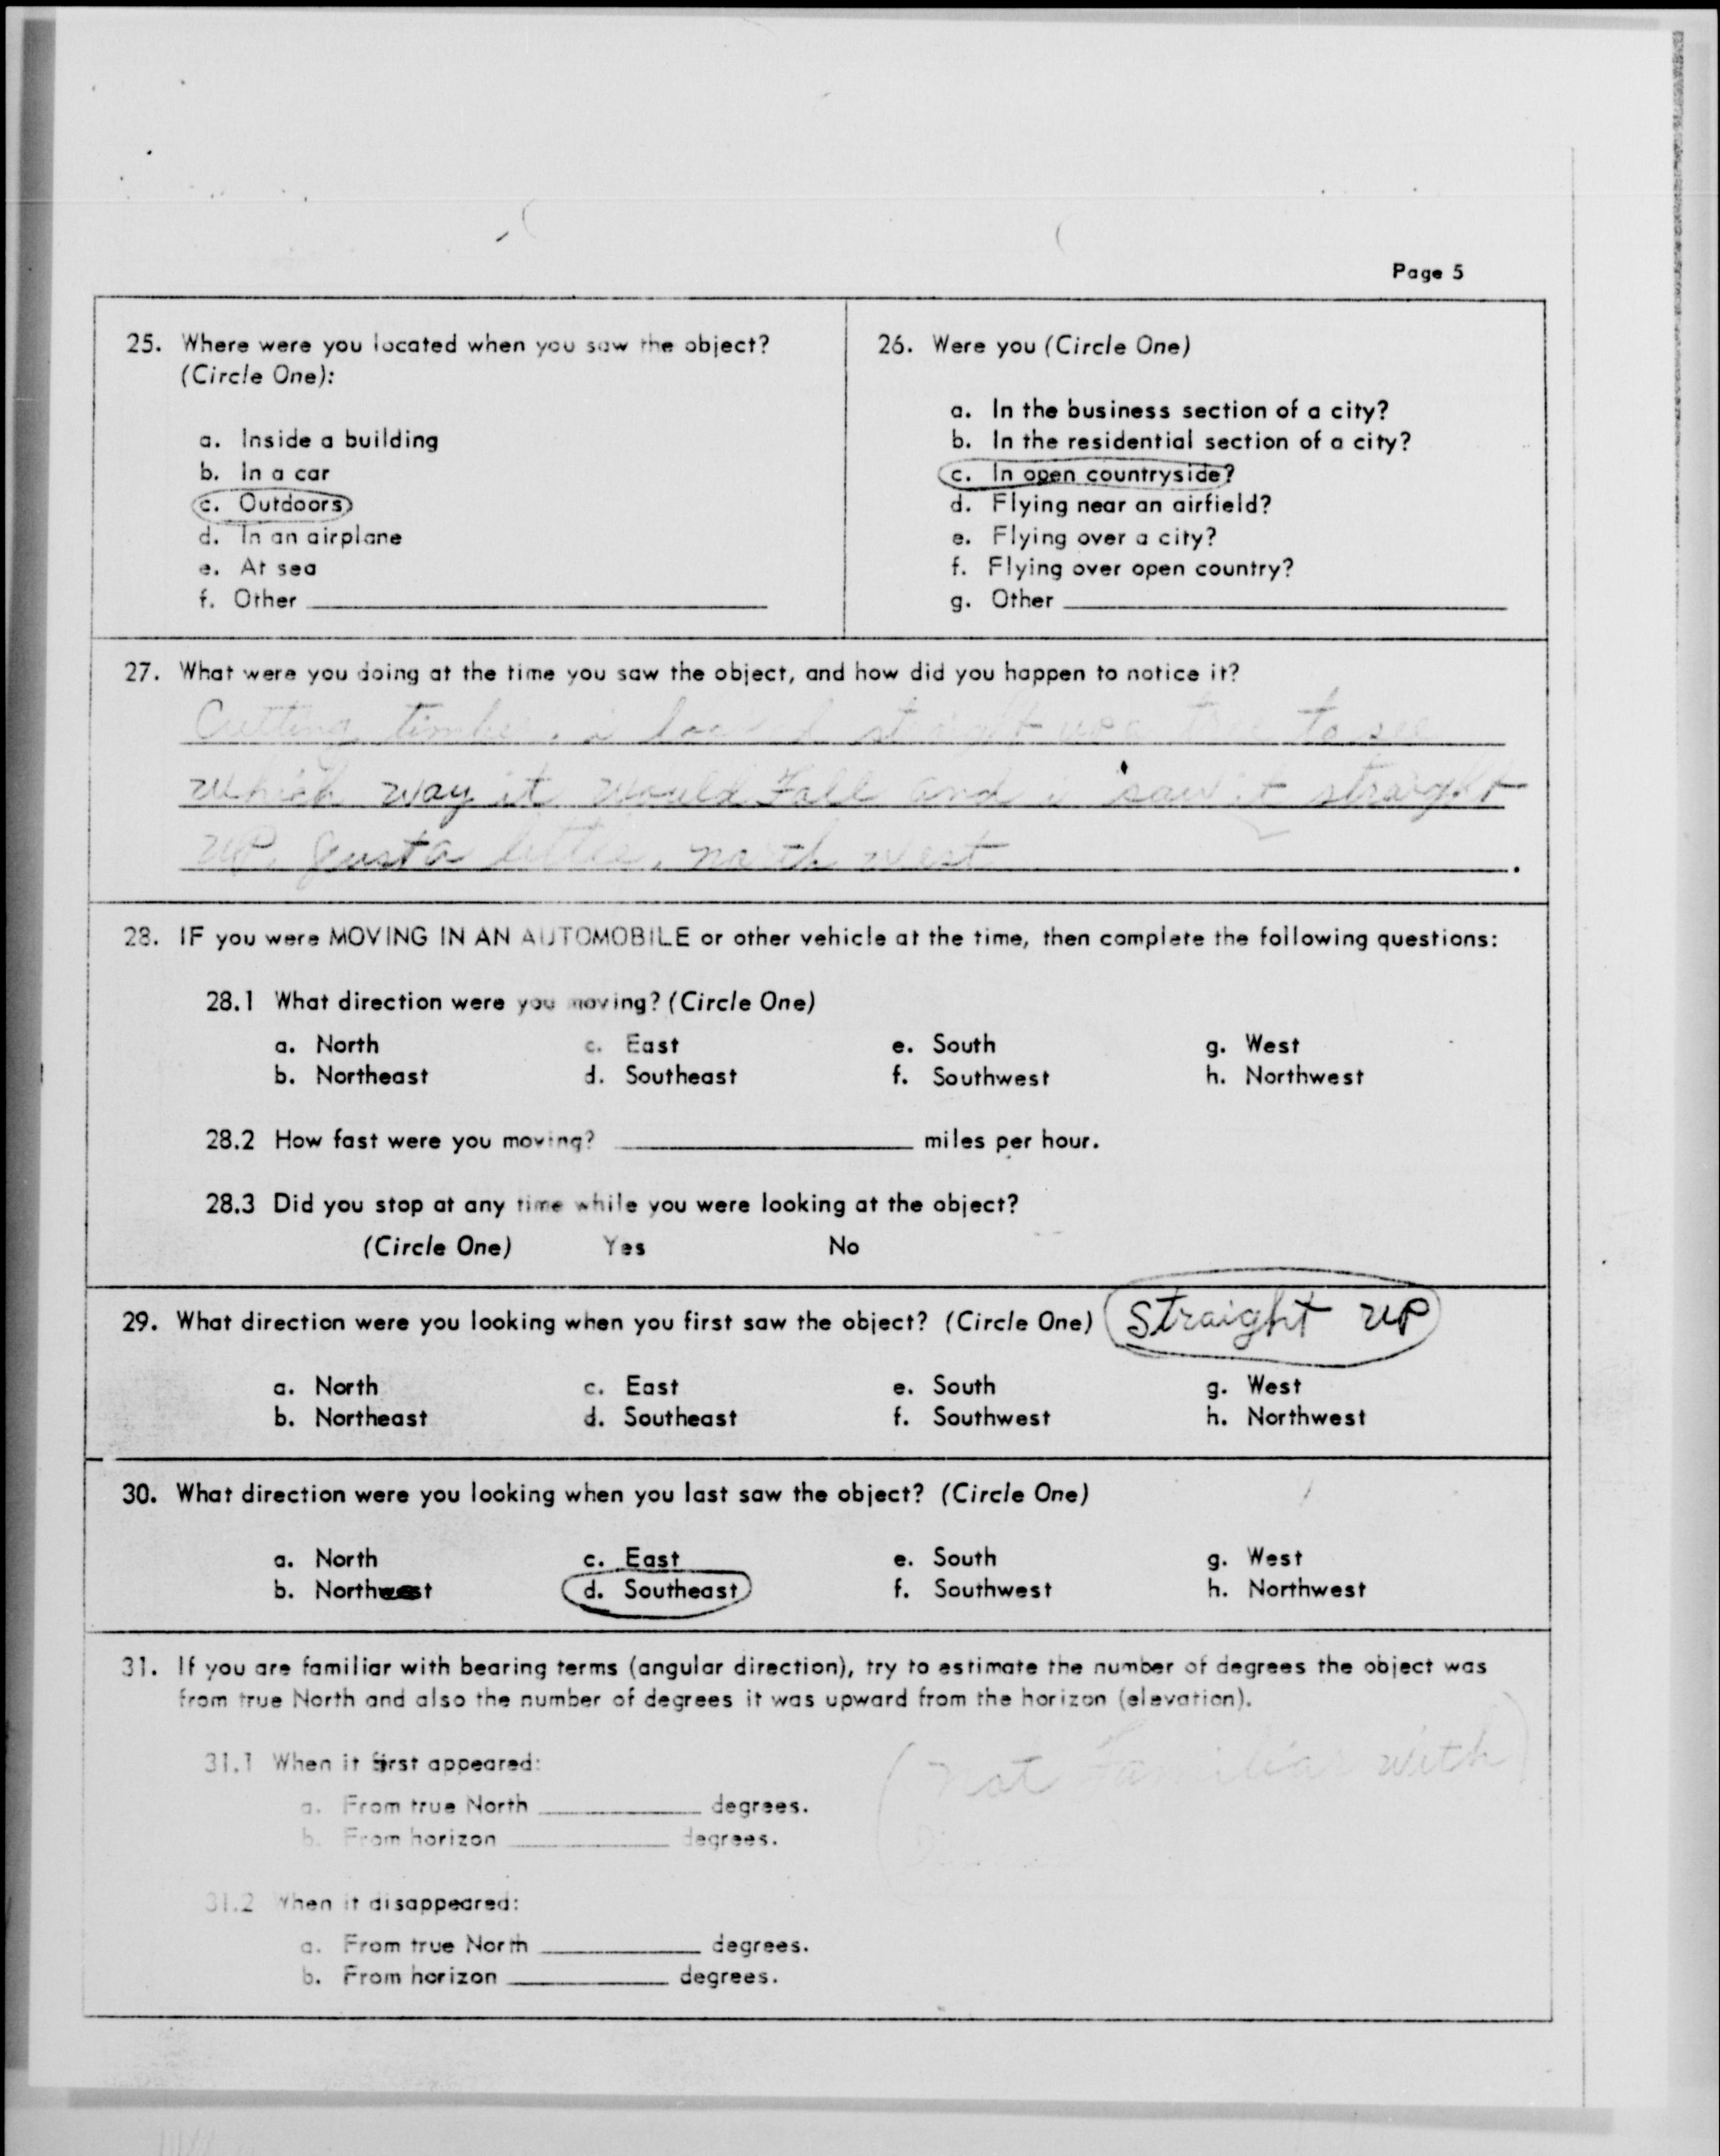 Page 5
25. Where were you located when you saw the object?
(Circle One):
a. Inside a building
b. In a car
c. Outdoors
d. In an airplane
e. At sea
f. Other
26. Were you (Circle One)
a. In the business section of a city?
b. In the residential section of a city?
c. In open countryside?
d. Flying near an airfield?
e. Flying over a city?
f. Flying over open country?
g. Other
27. What were you doing at the time you saw the object, and how did you happen to notice it?
Cutting timber. i looked straight up a tree to see
which way it would Fall and i saw it straight
up. Just a little. north west
28. IF you were MOVING IN AN AUTOMOBILE or other vehicle at the time, then complete the following questions:
28.1 What direction were you moving? (Circle One)
a. North c. East e. South g. West
b. Northeast d. Southeast f. Southwest h. Northwest
28.2 How fast were you moving? miles per hour.
28.3 Did you stop at any time while you were looking at the object?
(Circle One) Yes No
29. What direction were you looking when you first saw the object? (Circle One) straight up
a. North c. East e. South g. West
b. Northeast d. Southeast f. Southwest h. Northwest
30. What direction were you looking when you last saw the object? (Circle One)
a. North c. East e. South g. West
b. Northwest d. Southeast f. Southwest h. Northwest
31. If you are familiar with bearing terms (angular direction), try to estimate the number of degrees the object was
from true North and also the number of degrees it was upward from the horizon (elevation).
31.1 When it first appeared:
(not Familiar with)
a. From true North degrees.
b. From horizon degrees.
31.2 When it disappeared:
a. From true North degrees.
b. From horizon degrees.